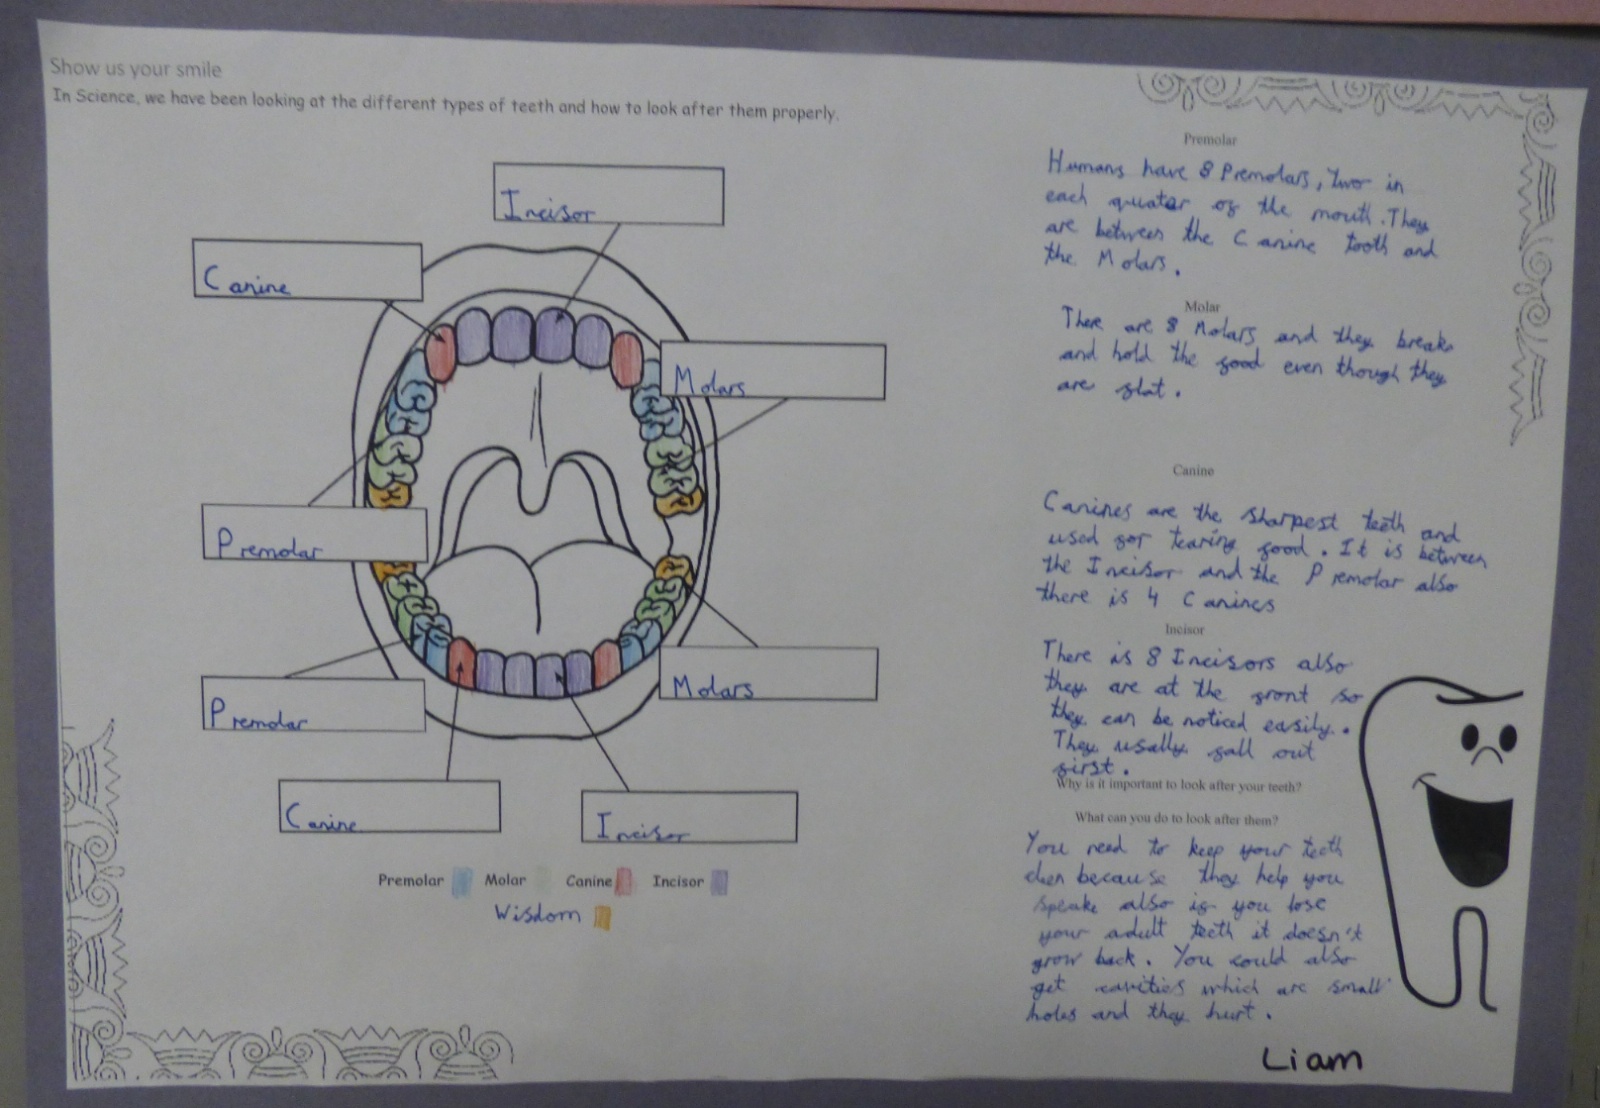 Show us your smile
In Science, we have been looking at the different types of teeth and how to look after them properly.
Incisor
Canine
Molars
Premolar
Premolar
Molars
Canine
Incisor
Premolar Molar Canine Incisor
Wisdom
Premolar
Humans have 8 Premolars, Two in
each quater of the mouth. They
are between the Canine tooth and
the Molars.
Molar
There are 8 Molars and they break
and hold the food even though they
are flat.
Canine
Canines are the sharpest teeth and
used for tearing food. It is between
the Incisor and the Premolar also
there is 4 Canines
Incisor
There is 8 Incisors also
they are at the front so
they can be noticed easily.
They usally fall out
first.
Why is it important to look after your teeth?
What can you do to look after them?
You need to keep your teeth
clen because they help you
speake also if you lose
your adult teeth it doesn't
grow back. You could also
get cavities which are small
holes and they hurt.
Liam